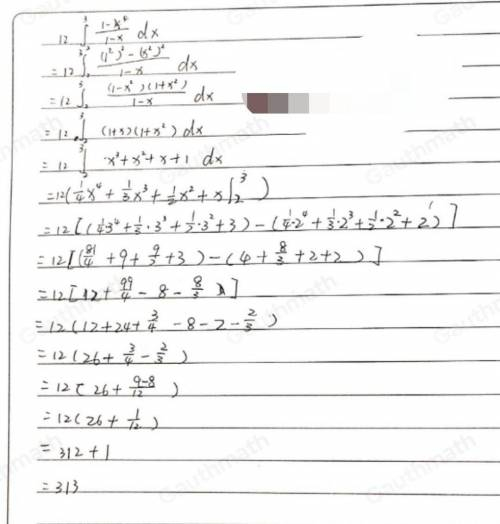 12 ∫₂³ (1-x⁴)/(1-x) dx
= 12 ∫₂³ ((1²)² - (x²)²)/(1-x) dx
= 12 ∫₂³ ((1-x²)(1+x²))/(1-x) dx
= 12 ∫₂³ (1+x)(1+x²) dx
= 12 ∫₂³ x³+x²+x+1 dx
= 12 (1/4 x⁴ + 1/3 x³ + 1/2 x² + x |₂³ )
= 12 [ (1/4·3⁴ + 1/3·3³ + 1/2·3² + 3) - (1/4·2⁴ + 1/3·2³ + 1/2·2² + 2) ]
= 12 [ (81/4 + 9 + 9/2 + 3) - (4 + 8/3 + 2 + 2) ]
= 12 [ 12 + 99/4 - 8 - 8/3 ]
= 12 ( 12 + 24 + 3/4 - 8 - 2 - 2/3 )
= 12 ( 26 + 3/4 - 2/3 )
= 12 ( 26 + (9-8)/12 )
= 12 ( 26 + 1/12 )
= 312 + 1
= 313
Gauthmath